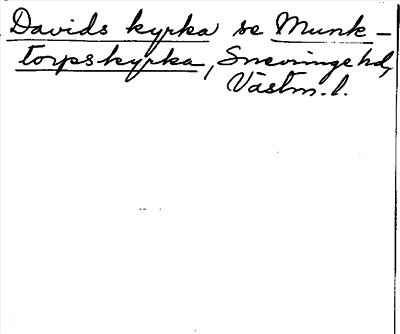 Davids kyrka se Munk-
torpskyrka, Snevringe hd,
Västm. l.